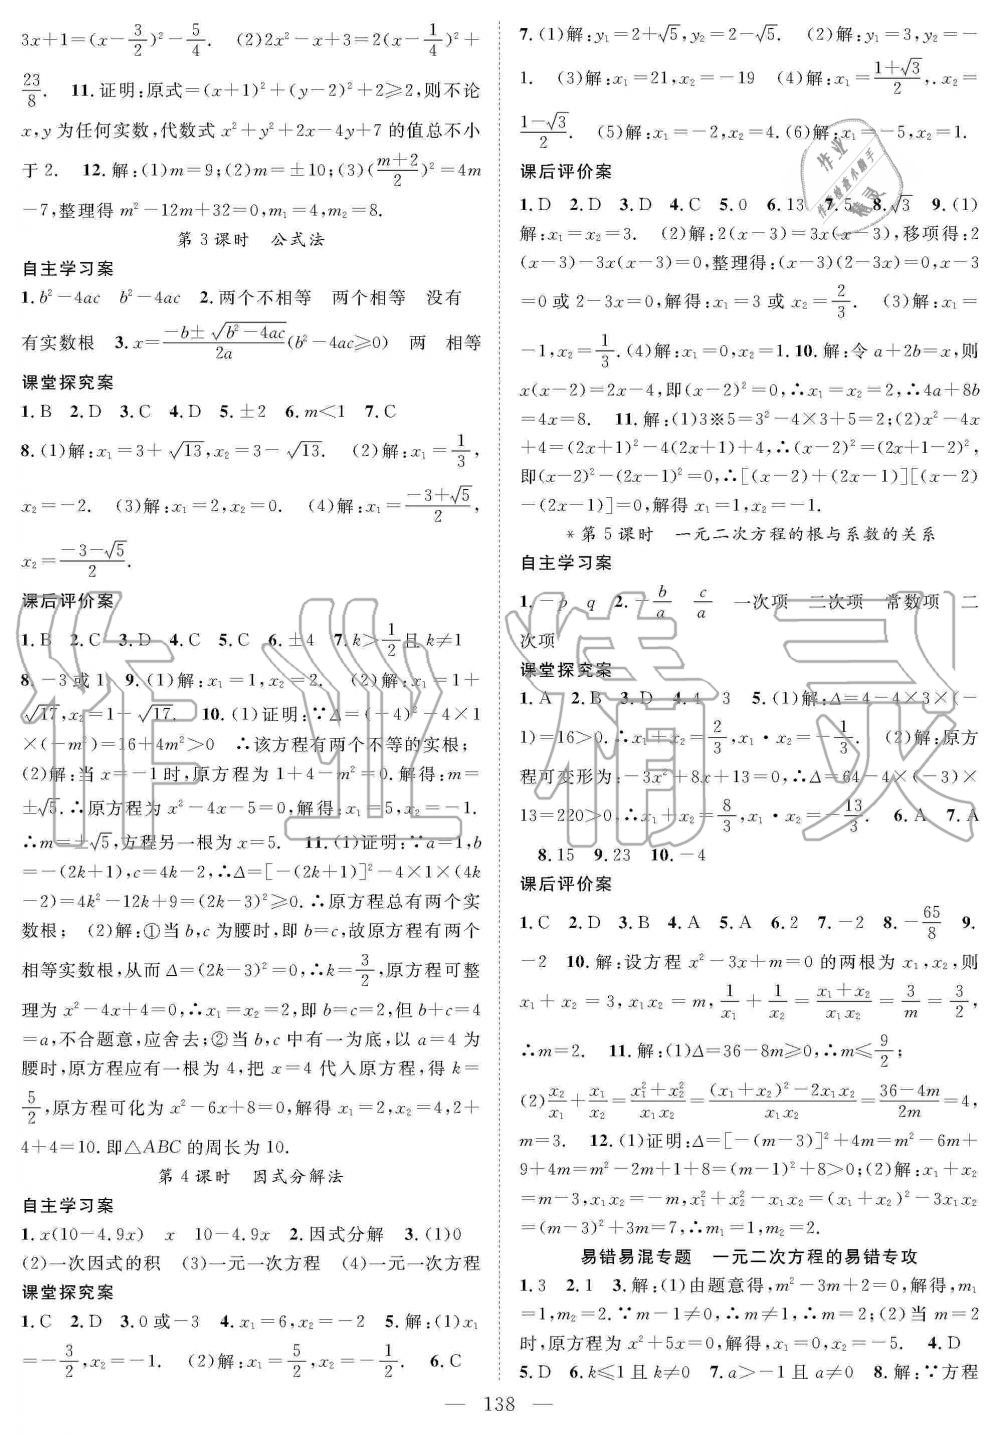 3x+1=(x-3/2)²-5/4. (2)2x²-x+3=2(x-1/4)²+
23/8. 11.证明:原式=(x+1)²+(y-2)²+2≥2,则不论
x,y为任何实数,代数式x²+y²+2x-4y+7的值总不小
于2. 12.解:(1)m=9;(2)m=±10;(3)((m+2)/2)²=4m
-7,整理得m²-12m+32=0,m₁=4,m₂=8.
第3课时 公式法
自主学习案
1.b²-4ac b²-4ac 2.两个不相等 两个相等 没有
有实数根 3.x=(-b±√(b²-4ac))/2a(b²-4ac≥0) 两 相等
课堂探究案
1.B 2.D 3.C 4.D 5.±2 6.m<1 7.C
8.(1)解:x₁=3+√13,x₂=3-√13. (2)解:x₁=1/3,
x₂=-2. (3)解:x₁=2,x₂=0. (4)解:x₁=(-3+√5)/2,
x₂=(-3-√5)/2.
课后评价案
1.B 2.C 3.D 4.C 5.C 6.±4 7.k>1/2且k≠1
8.-3或1 9.(1)解:x₁=1,x₂=2. (2)解:x₁=1+
√17,x₂=1-√17. 10.(1)证明:∵Δ=(-4)²-4×1
×(-m²)=16+4m²>0 ∴该方程有两个不等的实根;
(2)解:当x=-1时,原方程为1+4-m²=0.解得:m=
±√5.∴原方程为x²-4x-5=0,解得:x₁=5,x₂=-1.
∴m=±√5,方程另一根为x=5. 11.(1)证明:∵a=1,b
=-(2k+1),c=4k-2,∴Δ=[-(2k+1)]²-4×1×(4k
-2)=4k²-12k+9=(2k-3)²≥0.∴原方程总有两个实
数根; (2)解:①当b,c为腰时,即b=c,故原方程有两个
相等实数根,从而Δ=(2k-3)²=0,∴k=3/2,原方程可整
理为x²-4x+4=0,∴x₁=x₂=2,即b=c=2,但b+c=4
=a,不合题意,应舍去;②当b,c中有一为底,以a=4为
腰时,原方程应有一根为4,把x=4代入原方程,得k=
5/2,原方程可化为x²-6x+8=0,解得x₁=2,x₂=4,2+
4+4=10.即△ABC的周长为10.
第4课时 因式分解法
自主学习案
1.x(10-4.9x) x 10-4.9x 2.因式分解 3.(1)0
(2)一次因式的积 (3)一元一次方程 (4)一元一次方程
课堂探究案
1.C 2.D 3.0或-3 4.x₁=6,x₂=-2 5.解:(1)x₁
=-3/2,x₂=-1. (2)解:x₁=5/2,x₂=-1/2. 6.C
7.(1)解:y₁=2+√5,y₂=2-√5. (2)解:y₁=3,y₂=-
1. (3)解:x₁=21,x₂=-19 (4)解:x₁=(1+√3)/2,.x₂=
(1-√3)/2. (5)解:x₁=-2,x₂=4.(6)解:x₁=-5,x₂=1.
课后评价案
1.D 2.D 3.D 4.C 5.0 6.13 7.5 8.√3 9.(1)
解:x₁=x₂=3. (2)解:2(x-3)=3x(x-3),移项得:2
(x-3)-3x(x-3)=0,整理得:(x-3)(2-3x)=0,x-3
=0或2-3x=0,解得:x₁=3或x₂=2/3. (3)解:x₁=
-1,x₂=1/3.(4)解:x₁=0,x₂=1.10.解:令a+2b=x,则
x(x-2)=2x-4,即(x-2)²=0,∴x₁=x₂=2,∴4a+8b
=4x=8. 11.解:(1)3※5=3²-4×3+5=2;(2)x²-4x
+4=(2x+1)²-4(2x+1)+4,∴(x-2)²=(2x+1-2)²,
即(x-2)²-(2x-1)²=0,∴[(x-2)+(2x-1)][(x-2)
-(2x-1)]=0,解得x₁=1,x₂=-1.
*第5课时 一元二次方程的根与系数的关系
自主学习案
1.-p q 2.-b/a c/a 一次项 二次项 常数项 二
次项
课堂探究案
1.A 2.B 3.D 4.4 3 5.(1)解:Δ=4-4×3×(-
1)=16>0.∴x₁+x₂=2/3,x₁·x₂=-1/3. (2)解:原方
程可变形为:-3x²+8x+13=0,∴Δ=64-4×(-3)×
13=220>0.∴x₁+x₂=8/3,x₁·x₂=-13/3. 6.A 7.A
8.15 9.23 10.-4
课后评价案
1.C 2.D 3.B 4.A 5.A 6.2 7.-2 8.-65/8 9.
-2 10.解:设方程x²-3x+m=0的两根为x₁,x₂,则
x₁+x₂=3,x₁x₂=m,1/x₁+1/x₂=(x₁+x₂)/x₁x₂=3/m=3/2,
∴m=2. 11.解:(1)Δ=36-8m≥0,∴m≤9/2;
(2)x₂/x₁+x₁/x₂=(x₁²+x₂²)/x₁x₂=((x₁+x₂)²-2x₁x₂)/x₁x₂=(36-4m)/2m=4,
m=3. 12.(1)证明:Δ=[-(m-3)]²+4m=m²-6m+
9+4m=m²-2m+1+8=(m-1)²+8>0;(2)解:x₁+x₂
=m-3,x₁x₂=-m,x₁²+x₂²-x₁x₂=(x₁+x₂)²-3x₁x₂
=(m-3)²+3m=7,∴m₁=1,m₂=2.
易错易混专题 一元二次方程的易错专攻
1.3 2.1 3.解:(1)由题意得,m²-3m+2=0,解得,m₁
=1,m₂=2.∵m-1≠0,∴m≠1,∴m=2;(2)当m=2
时,原方程为x²+5x=0,解得,x₁=0,x₂=-5. 4.D
5.D 6.k≤1且k≠0 7.a>-1且a≠0 8.解:∵方程
— 138 —
作业精灵